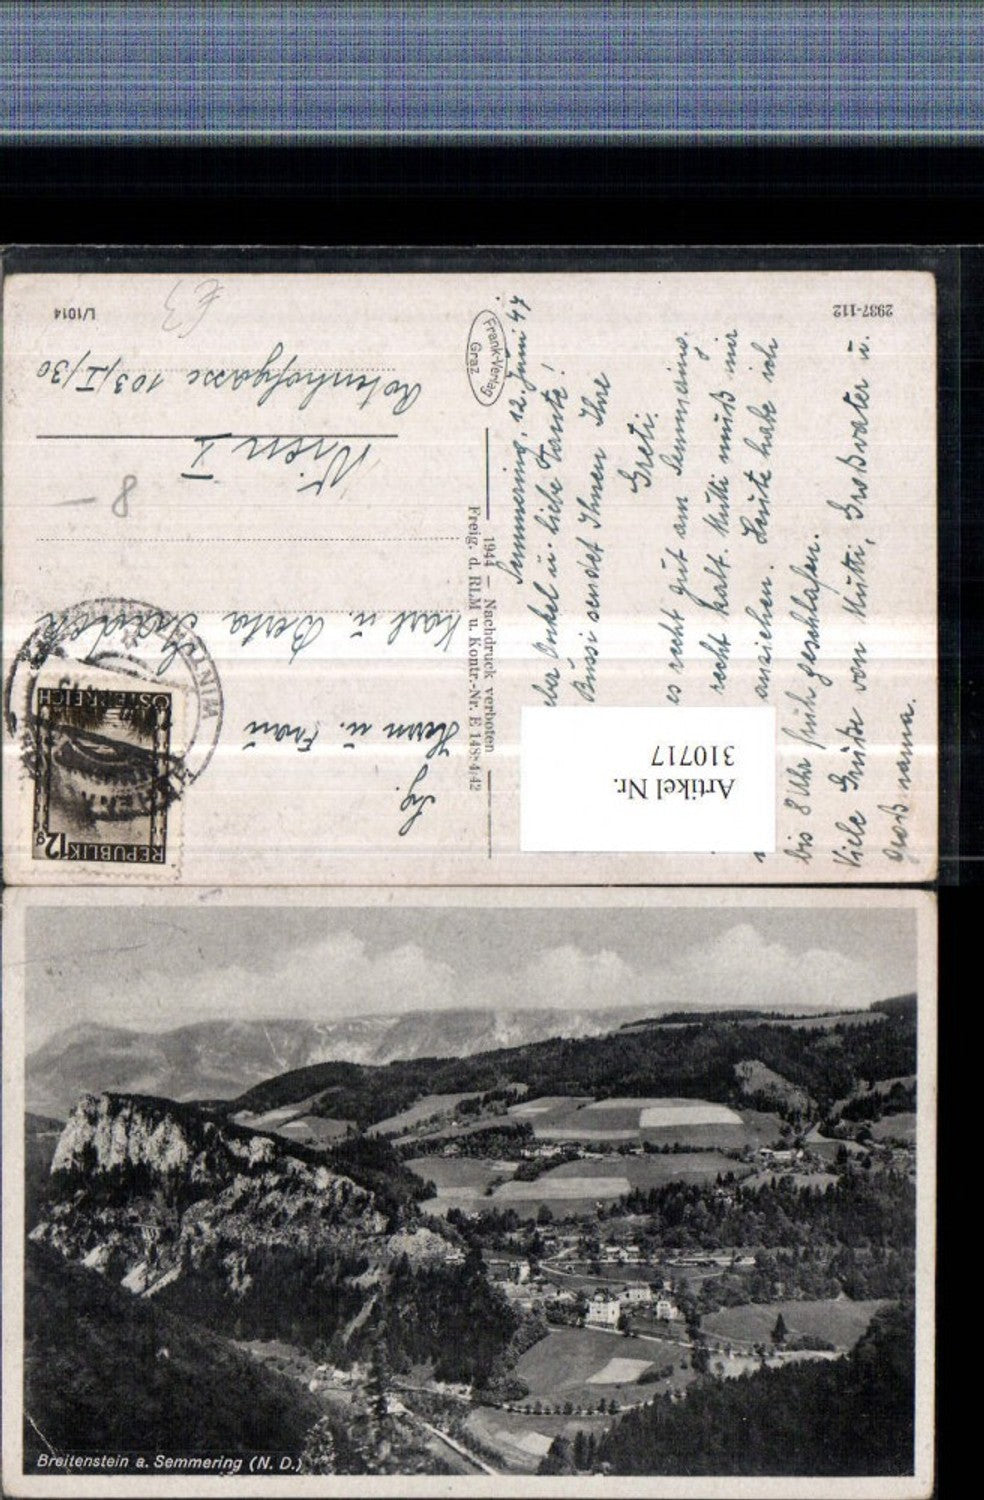 2937-112
L/1014
Frank-Verlag
Graz
Semmering, 12. Juni 47
Onkel u. liebe Tante!
Bussi sendet Ihnen Ihre
Greti.
es recht gut am Semmering.
recht kalt. Mutti muß mir
anziehen. Heute habe ich
bis 8 Uhr früh geschlafen.
Viele Grüße von Mutti, Großvater u.
Großmama.
Artikel Nr.
310717
1944 – Nachdruck verboten
Freig. d. RLM u. Kontr.-Nr. E 148:4:42
Ing.
Herrn u. Frau
Karl u. Berta
Wien I
Rotenhofgasse 103/I/30
8 –
REPUBLIK
12g
ÖSTERREICH
Breitenstein a. Semmering (N. D.)